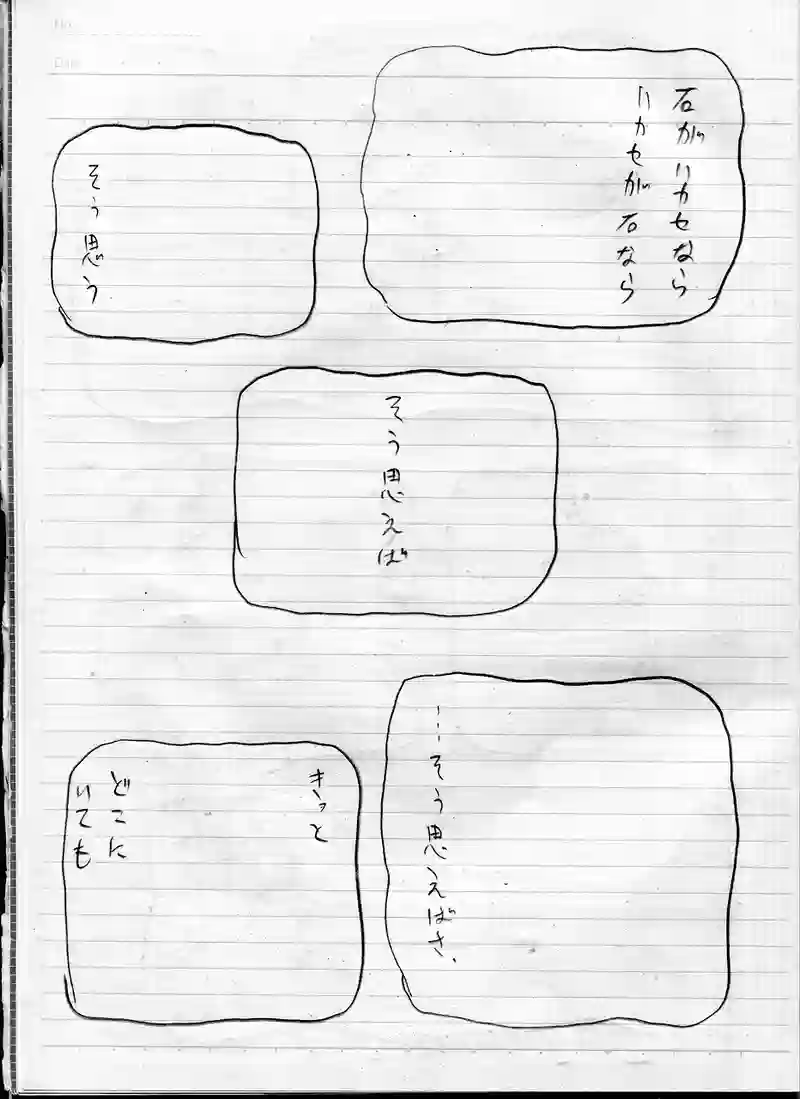 石がハカセなら
ハカセが石なら
そう思う
そう思えば
…そう思えばさ、
きっと
どこに
いても